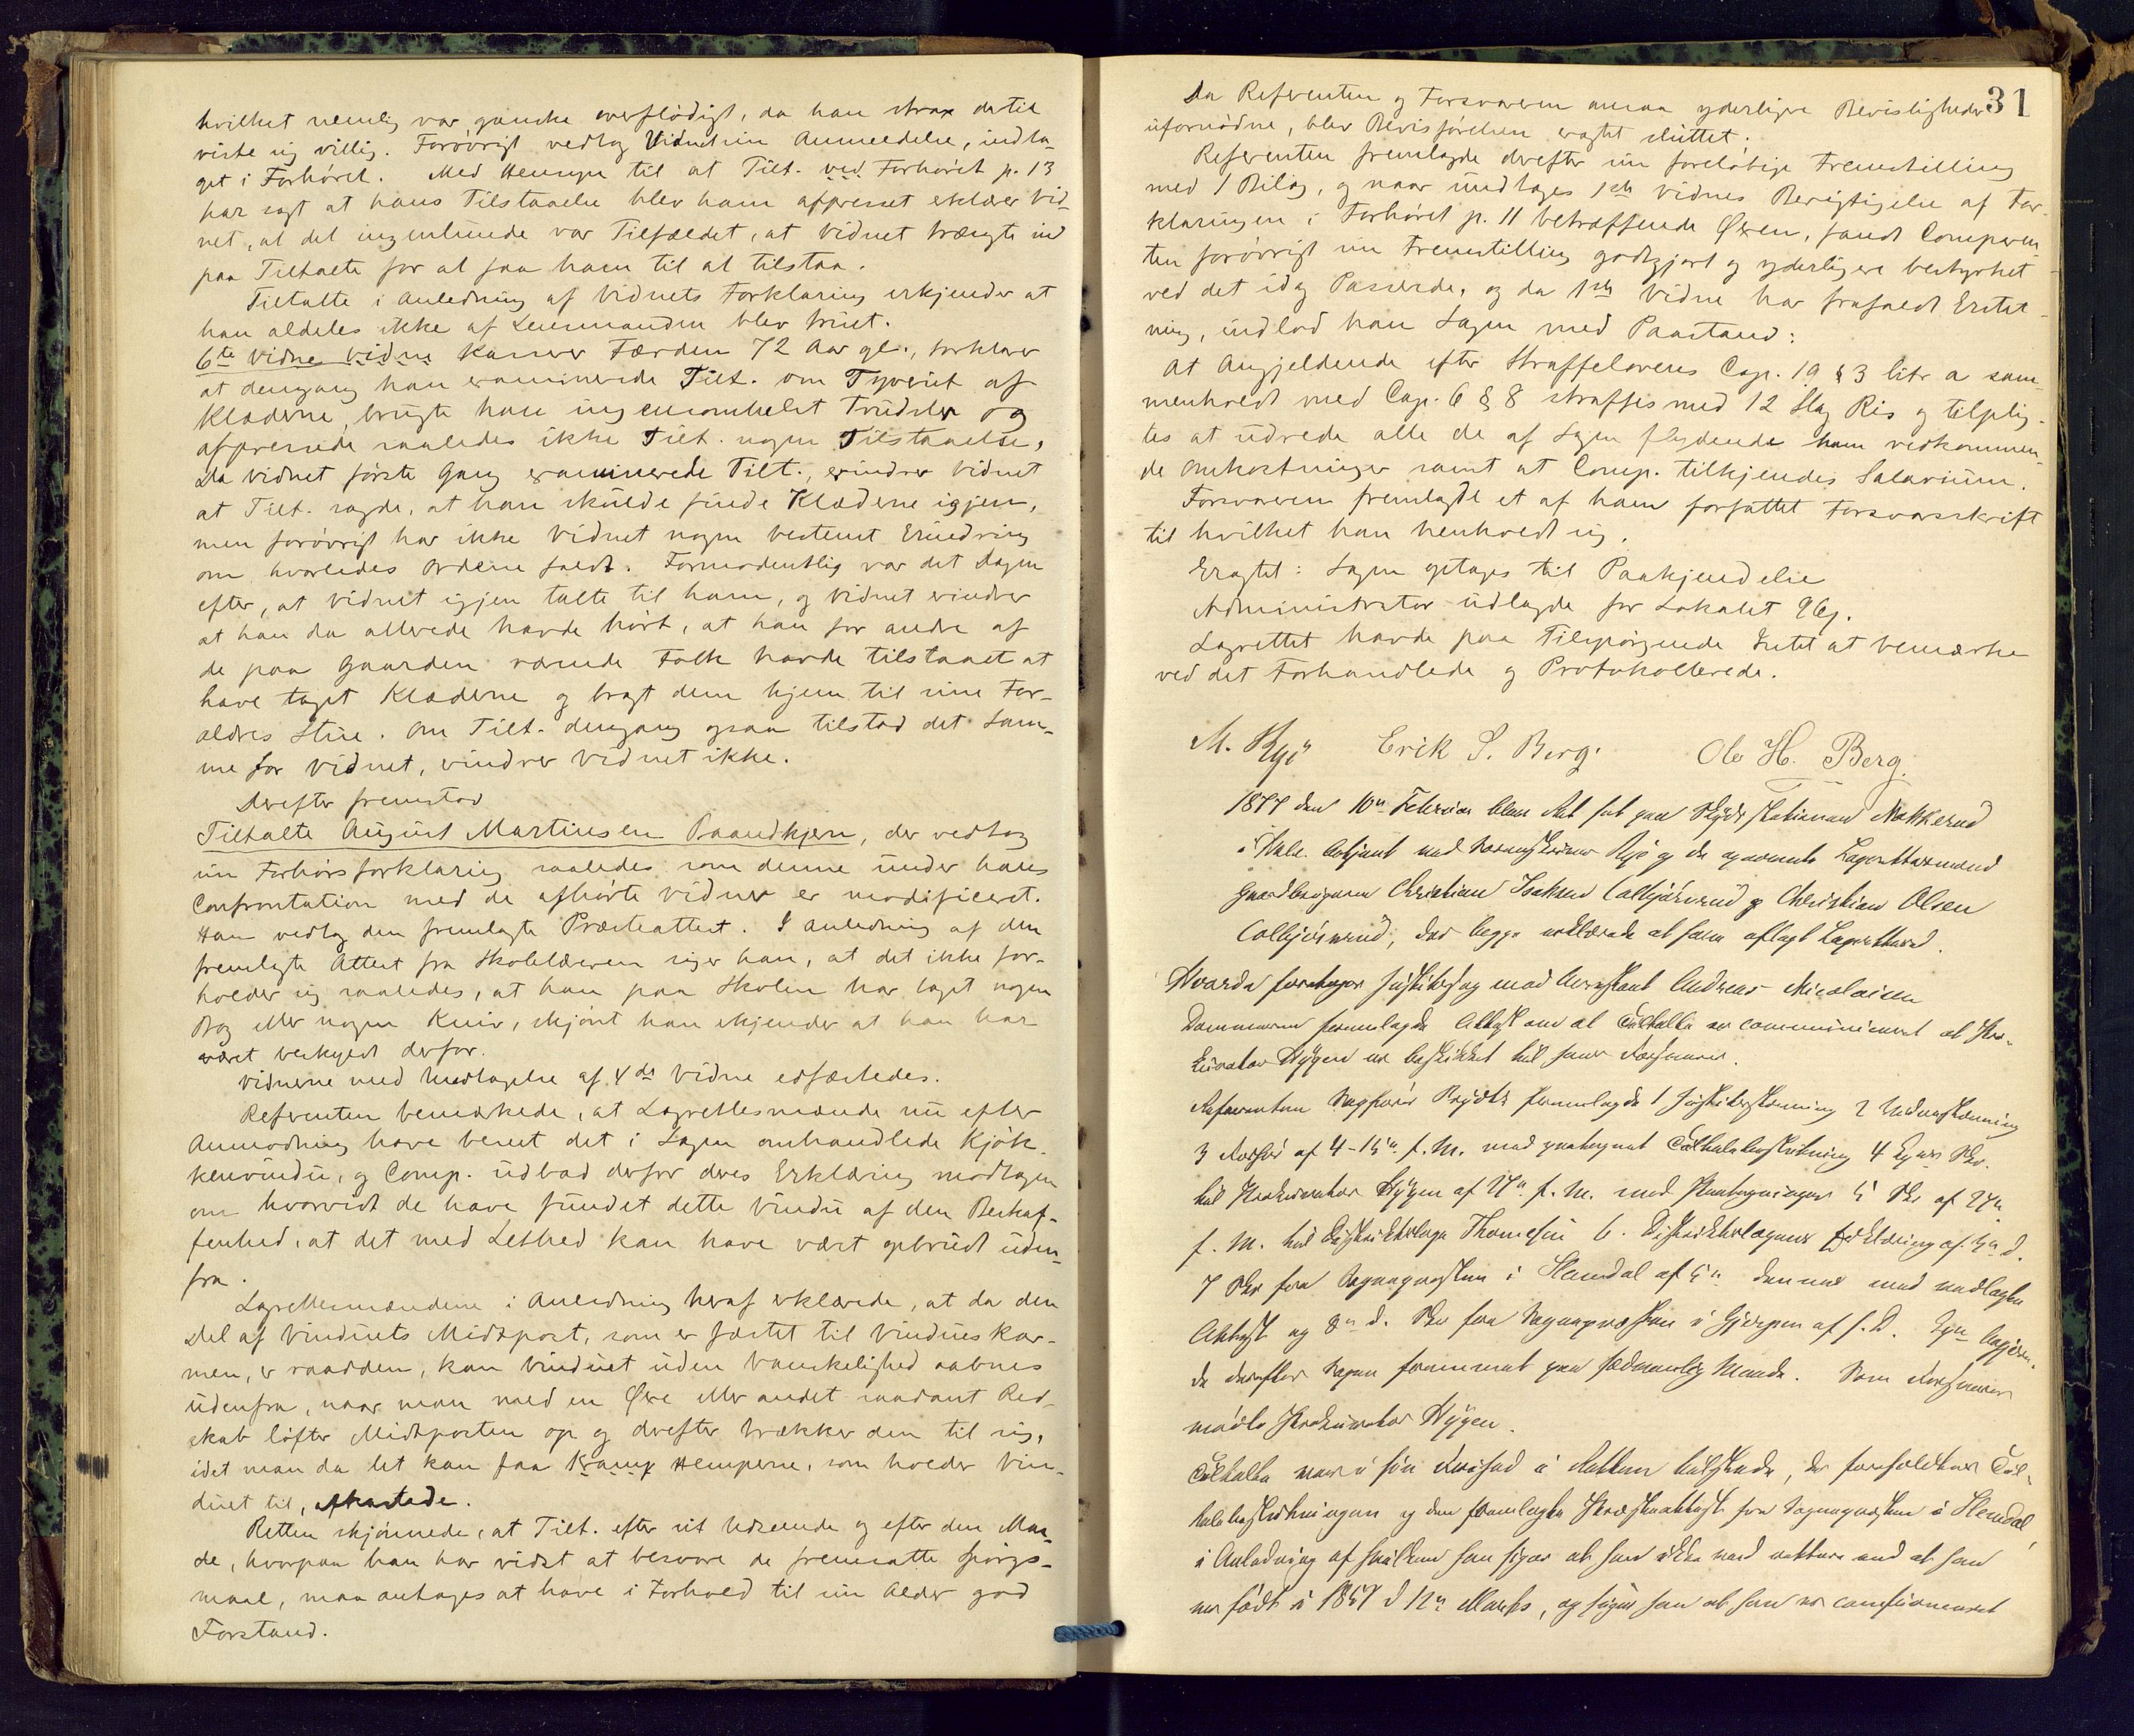 hvilket nemlig var ganske overflødigt, da han strax dertil
viste sig villig. Forøvrigt vedtog Vidnet sin Anmeldelse, indta-
get i Forhøret. Med Hensyn til at Tilt. ved Forhøret p. 13
har sagt at hans Tilstaaelse blev ham afpresset erklærer Vid-
net, at det ingenlunde var Tilfældet, at Vidnet trængte ind
paa Tiltalte for at faa ham til at tilstaa.
Tiltalte i Anledning af Vidnets Forklaring erkjender at
han aldeles ikke af Lensmanden blev truet.
6te Vidne Vidne Færden 72 Aar gl., forklarer
at dengang han examinerede Tilt. om Tyveriet af
Klæderne, brugte han ingensomhelst Trudsler og
afpressede saaledes ikke Tilt. nogen Tilstaaelse,
Da Vidnet første Gang examinerede Tilt., erindrer Vidnet
at Tilt. sagde, at han skulde finde Klæderne igjen,
men forøvrigt har ikke Vidnet nogen bestemt Erindring
om hvorledes Ordene faldt. Formodentlig var det Dagen
efter, at Vidnet igjen talte til ham, og Vidnet erindrer
at han da allerede havde hørt, at han for andre af
de paa Gaarden værende Folk havde tilstaaet at
have taget Klæderne og bragt dem hjem til sine For-
ældres Stue. Om Tilt. dengang ogsaa tilstod det Sam-
me for Vidnet, erindrer Vidnet ikke.
Derefter fremstod
Tiltalte August Martinsen Paandkjern, der vedtog
sin Forhørsforklaring saaledes som denne under hans
Confrontation med de afhørte Vidner er modificeret.
Han vedtog den fremlagte Præsteattest. I Anledning af den
fremlagte Attest fra Skolelæreren siger han, at det ikke for-
holder sig saaledes, at han paa Skolen har taget nogen
Bog eller nogen Kniv, skjønt han erkjender at han har
været beskyldt derfor.
Vidnerne med Undtagelse af 4de Vidne edfæstedes.
Referenten bemærkede, at Lagrettesmændene nu efter
Anmodning have beseet det i Sagen omhandlede Kjøk-
kenvindu, og Comp. udbad derfor deres Erklæring modtagen
om hvorvidt de have fundet dette Vindu af den Beskaf-
fenhed, at det med Lethed kan have vært opbrudt uden-
fra.
Lagrettesmændene i Anledning heraf erklærede, at da den
Del af Vinduets Midtpost, som er fæstet til Vindueskar-
men, er raadden, kan Vinduet uden Vanskelighed aabnes
udenfra, naar man med en Øxe eller andet saadant Red-
skab løfter Midtposten op og derefter trækker den til sig,
idet man da let kan faa Kramp Hemperne, som holder Vin-
duet til, afkastede.
Retten skjønnede, at Tilt. efter sit Udseende og efter den Maa-
de, hvorpaa han har vidst at besvare de fremsatte Spørgs-
maal, maa antages at have i Forhold til sin Alder god
Forstand.
31
Da Referenten og Forsvareren ansaa yderligere Bevisligheder
ufornødne, blev Bevisførelsen eragtet sluttet.
Referenten fremlagde derefter sin foreløbige Fremstilling
med 1 Bilag, og naar undtages 1ste Vidnes Berigtigelse af For-
klaringen i Forhøret p. 11 betræffende Øxen, fandt Comparen-
ten forøvrigt sin Fremstilling godtgjort og yderligere bestyrket
ved det idag Passerede, og da 1ste Vidne har frafaldt Erstat-
ning, indlod han Sagen med Paastand:
At Angjeldende efter Straffelovens Cap. 19 § 3 litr a sam-
menholdt med Cap. 6 § 8 straffes med 12 Slag Ris og tilplig-
tes at udrede alle de af Sagen flydende ham vedkommen-
de Omkostninger samt at Comp. tilkjendes Salarium.
Forsvareren fremlagde et af ham forfattet Forsvarsskrift
til hvilket han henholdt sig.
Eragtet: Sagen optages til Paakjendelse
Administrator udlagde for Lokalet
Lagrettet havde paa Tilspørgende Intet at bemærke
ved det Forhandlede og Protokollerede.
M. Ryé Erik S. Berg. Ole H. Berg.
1877 den 10de Februar blev Ret sat paa Skydsstationen Nakkerud
i Hole. Betjent med Sorenskriver Ryé og de opnævnte Lagrettesmænd
Gaardbrugerne Christian Isaksen Colbjørnrud og Christian Olsen
Colbjørnrud, der begge erklærede at have aflagt Lagretteed.
Hvorda foretages Justitssag mod Arrestant Andreas Nicolaisen
Dommeren fremlagde Attest om at Tiltalte er communiceret at Pro-
kurator Hygen er beskikket til hans Forsvarer.
Referenten Sagfører fremlagde 1 Justitsstævning 2 Vidnestævning
3 Forhør af 4-15de f. M. med paategnet Tiltalebeslutning 4 Skr.
til Prokurator Hygen af f. M. med Paategninger 5 Skr af
f. M. til Distriktslæge Thomesen 6. Distriktslægens Erklæring af d.
7 Skr fra Sognepræsten i Slemdal af 5te dennes med vedlagte
Attest og 8de d. Skr fra Sognepræsten i Gjerpen af s. D.
de derefter Sagen fremmet paa sædvanlig Maade. Som Forsvarer
mødte Prokurator Hygen.
Tiltalte var i sin Frihed i Retten tilstede, der foreholdtes Til-
talebeslutningen og den fremlagte Præsteattest fra Sognepræsten i Slemdal,
i Anledning af hvilken han siger at han ikke ved rettere end at han
er født i 1857 d 12te Marts, og siger han at han er confirmeret